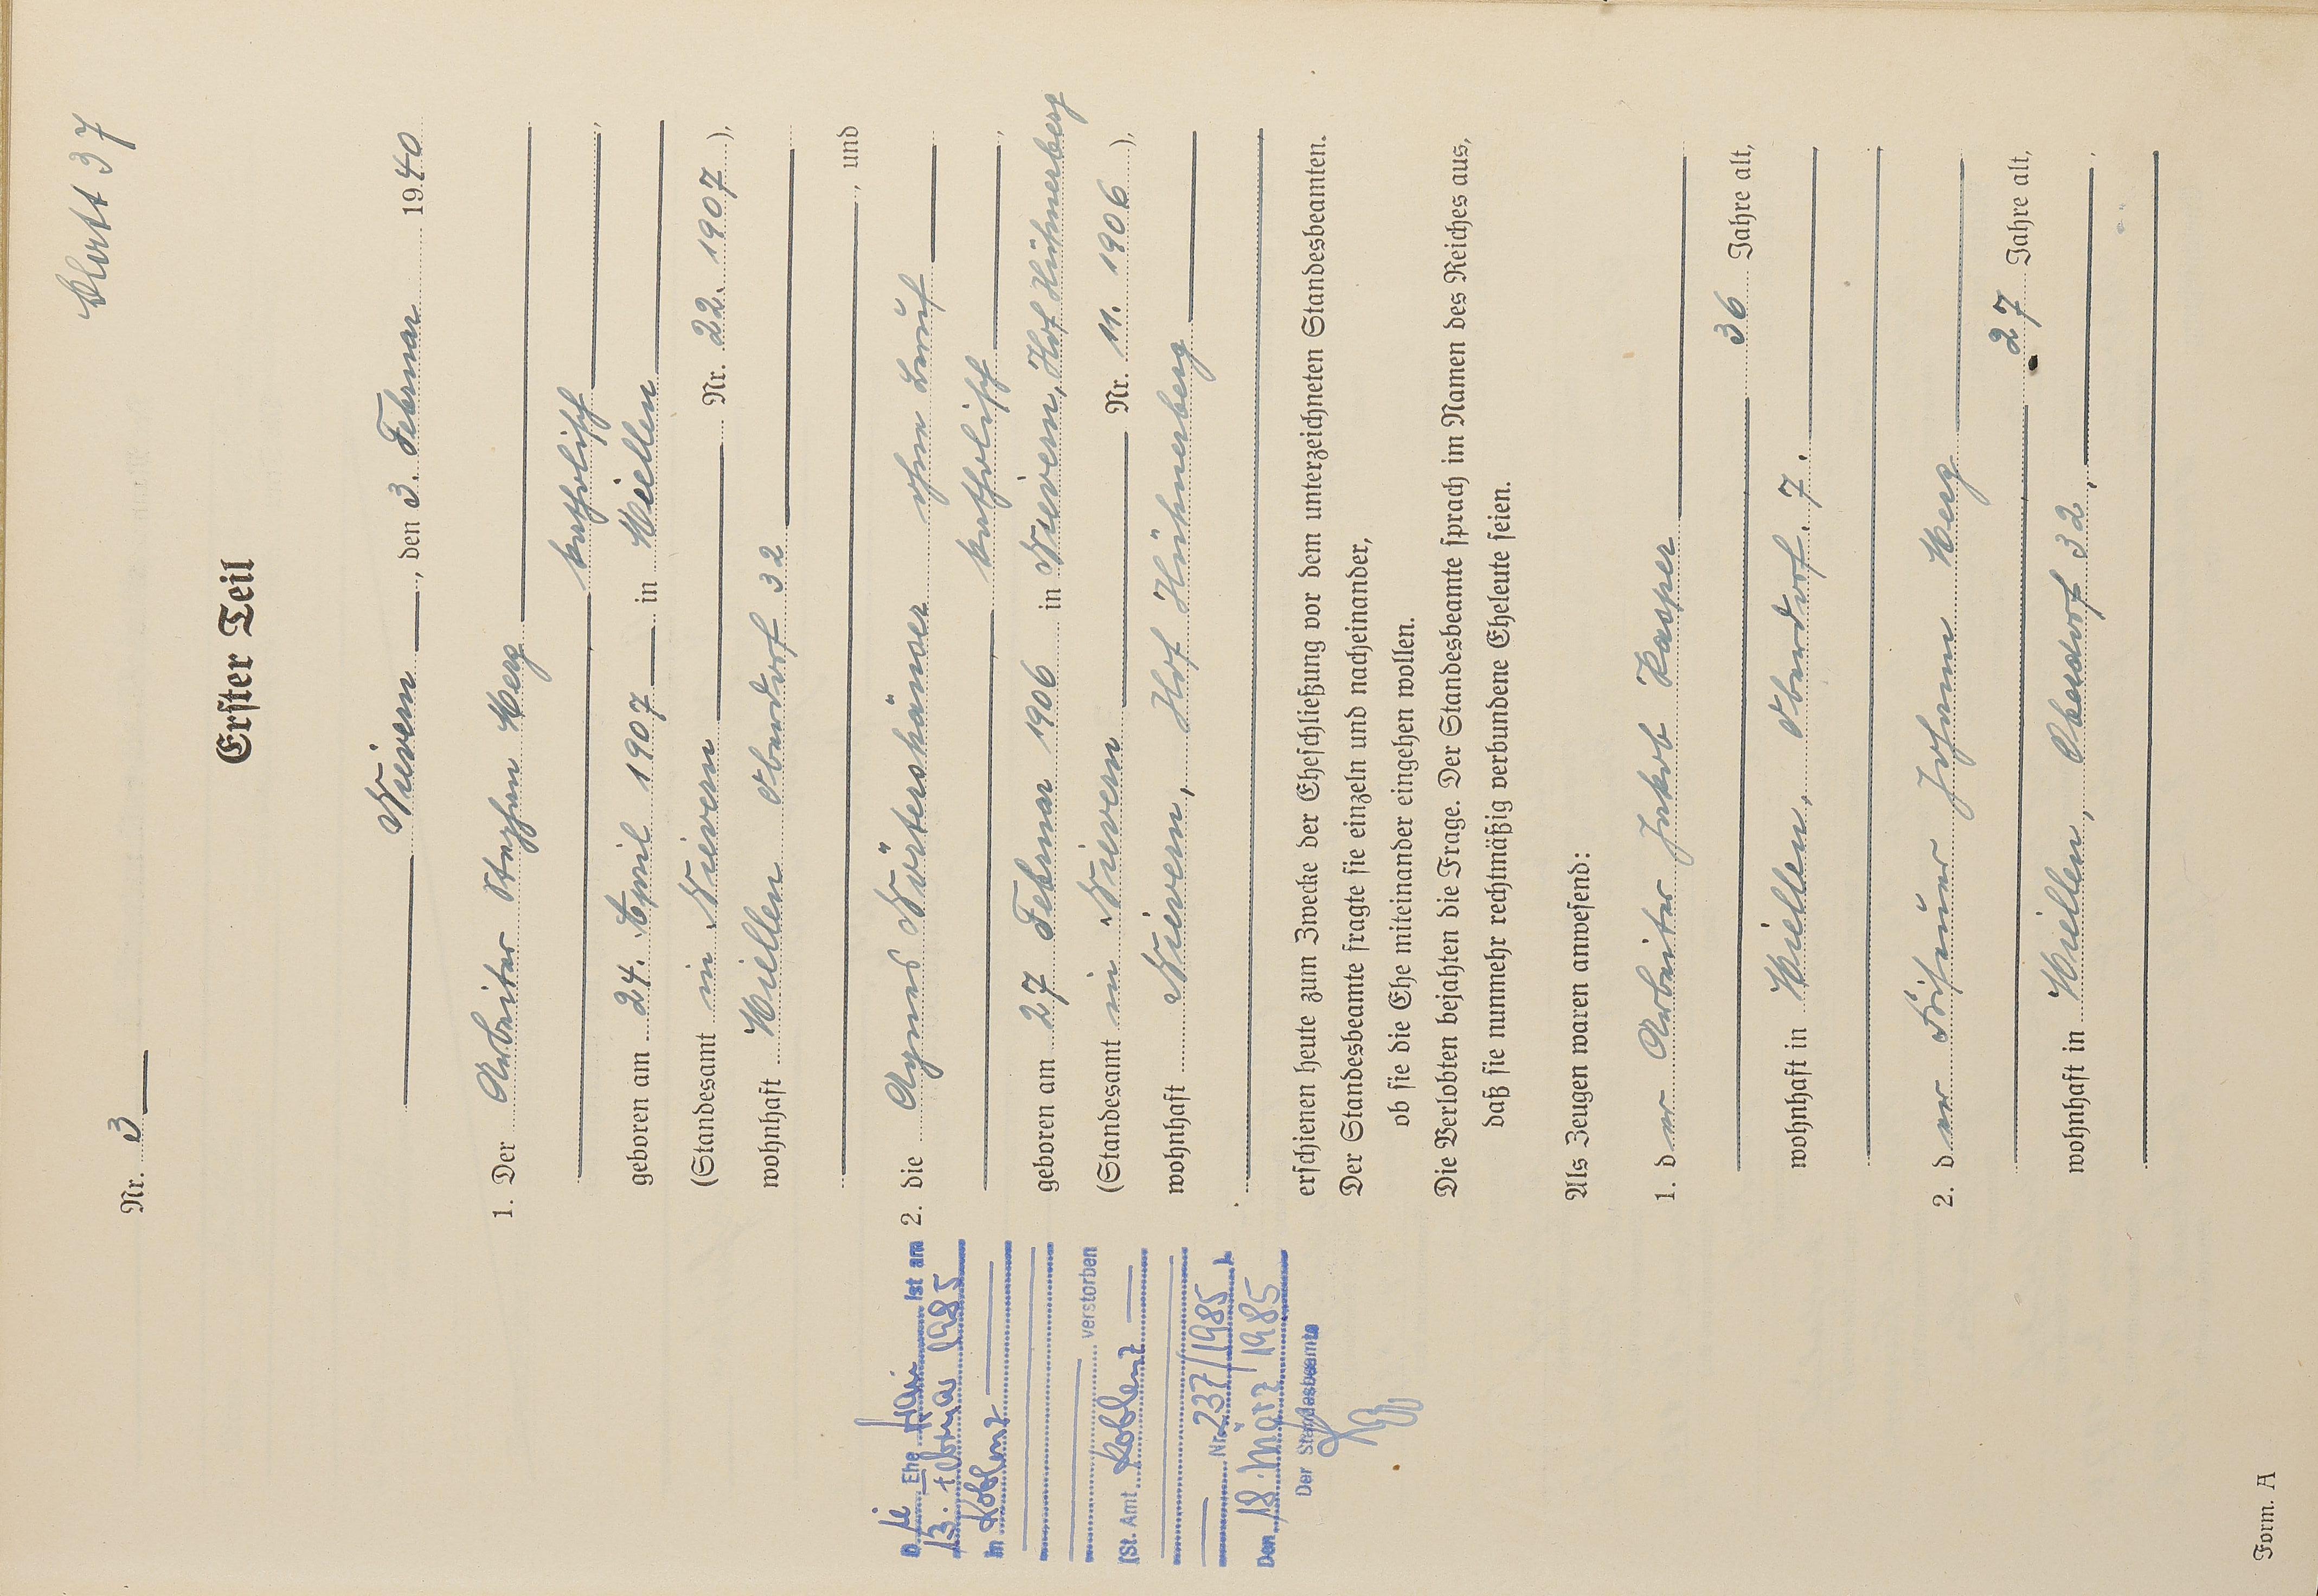 Blatt 37
Nr. 3
Erster Teil
Nievern, den 3. Februar 1940
1. Der Arbeiter Stephan Merg
katholisch
geboren am 24. April 1907 in Miellen
(Standesamt in Nievern Nr. 22. 1907),
wohnhaft Miellen Oberdorf 32
, und
2. die Agnes Wörtershäuser ohne Beruf
katholisch
geboren am 27 Februar 1906 in Nievern, Hof Hühnerberg
(Standesamt in Nievern Nr. 11. 1906),
wohnhaft Nievern, Hof Hühnerberg
erschienen heute zum Zwecke der Eheschließung vor dem unterzeichneten Standesbeamten.
Der Standesbeamte fragte sie einzeln und nacheinander,
ob sie die Ehe miteinander eingehen wollen.
Die Verlobten bejahten die Frage. Der Standesbeamte sprach im Namen des Reiches aus,
daß sie nunmehr rechtmäßig verbundene Eheleute seien.
Als Zeugen waren anwesend:
1. der Arbeiter Jakob Kasper
36 Jahre alt,
wohnhaft in Miellen, Oberdorf. 7.
2. der Friseur Johann Merg
27 Jahre alt,
wohnhaft in Miellen, Oberdorf 32,
Die Ehefrau ist am
13. Februar 1985
in Koblenz
verstorben
(St. Amt Koblenz
Nr. 237/1985)
Den 18. März 1985
Der Standesbeamte
Form. A